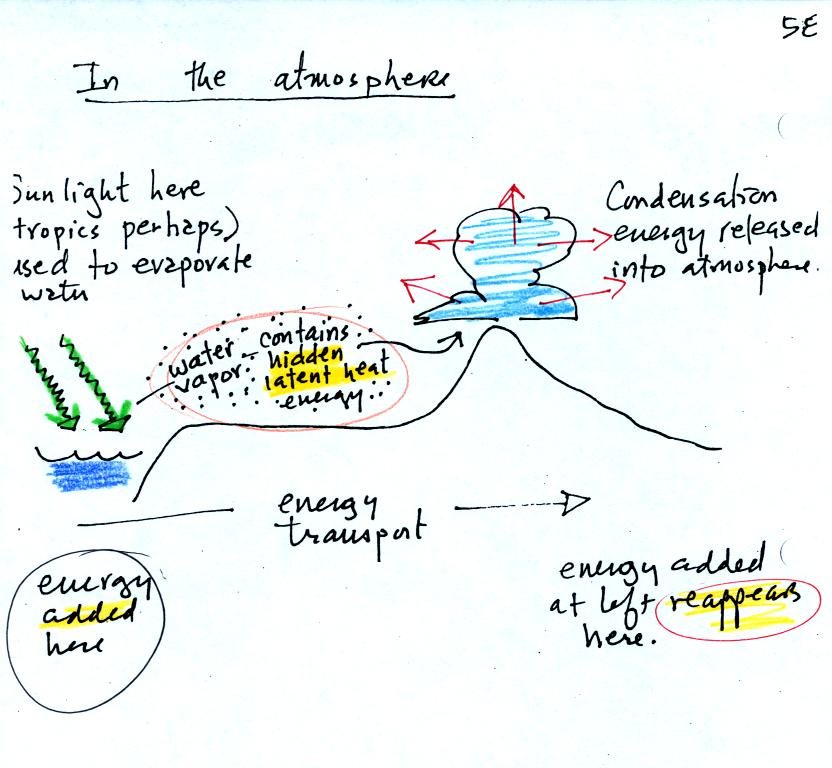 5E
In the atmosphere
Sunlight here
(tropics perhaps)
used to evaporate
water
Condensation
energy released
into atmosphere.
water
vapor
contains
hidden
latent heat
energy
energy
transport
energy
added
here
energy added
at left reappears
here.